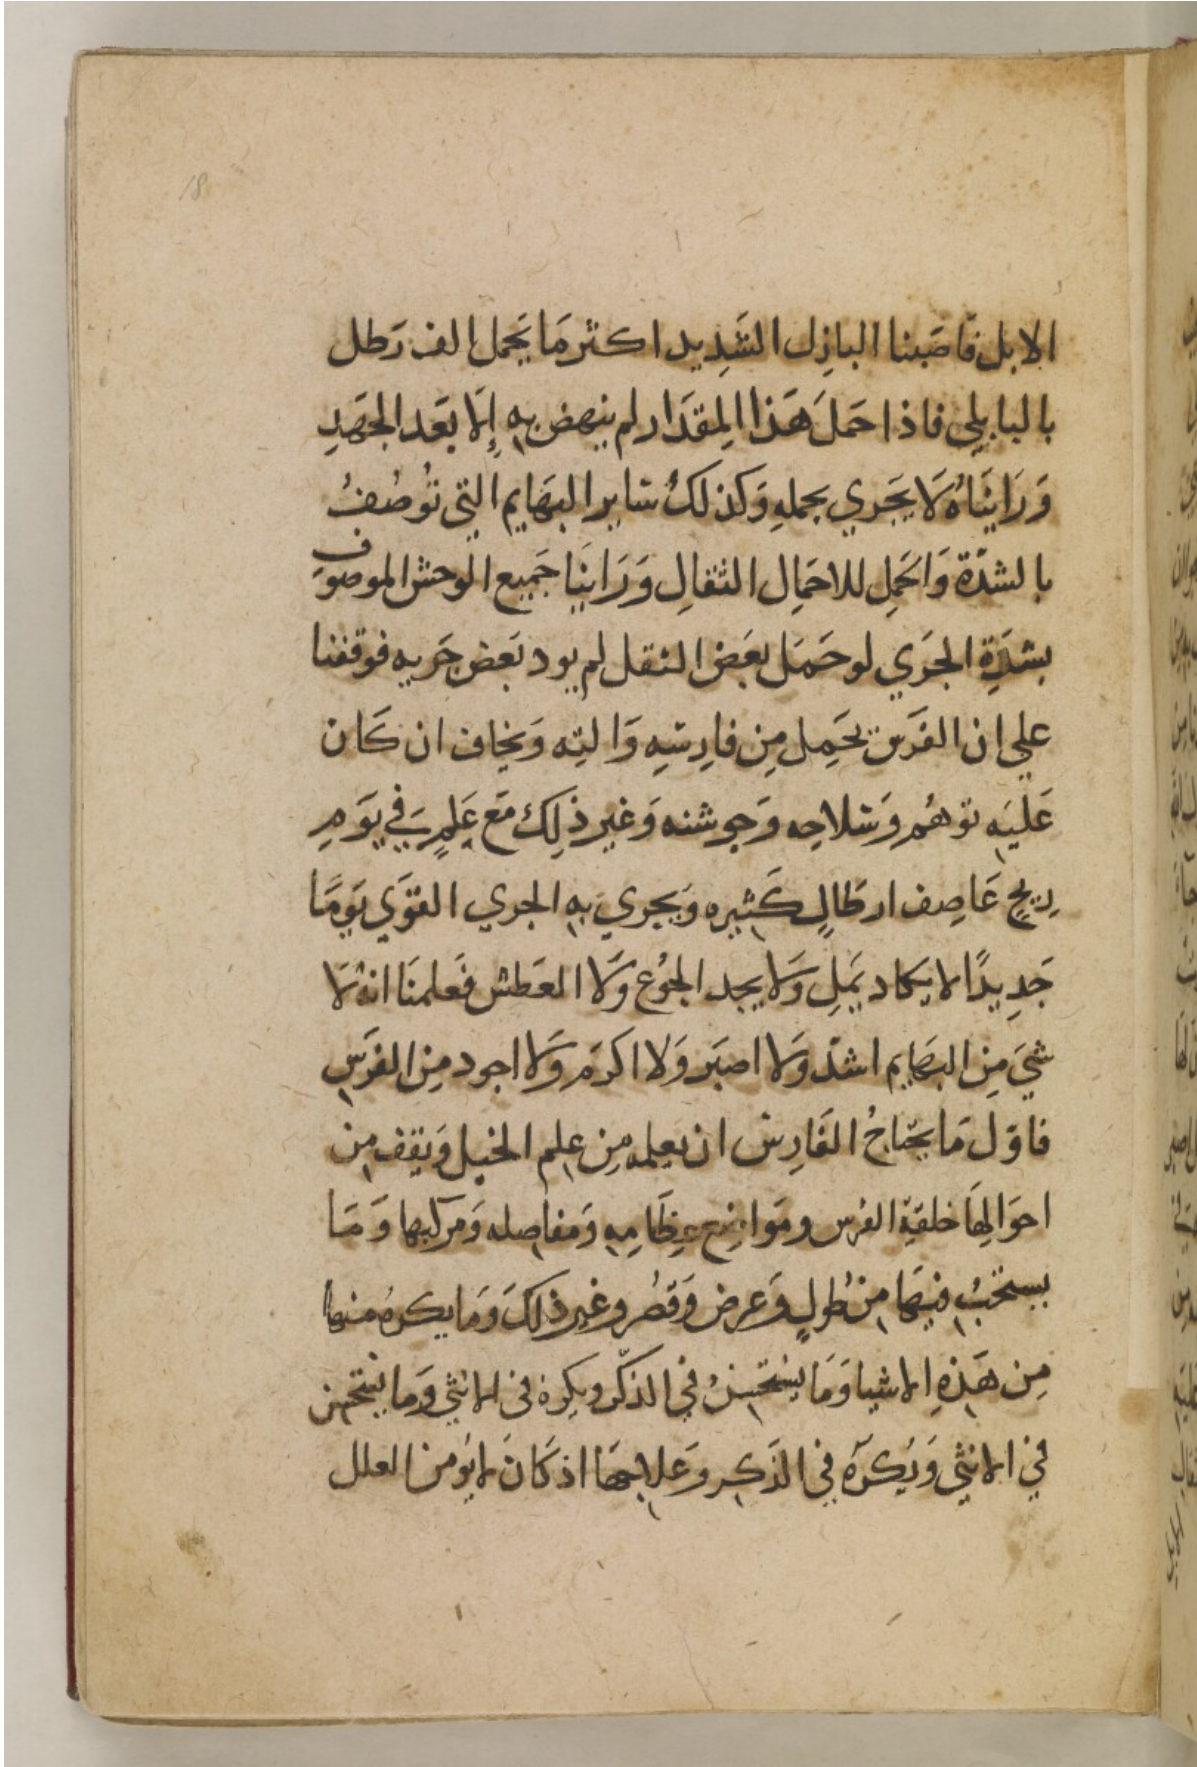 18
الابل فاصبنا البازل الشديد اكثر مَا يَحمل الف رَطل
بالبابلي فاذا حَملَ هَذا المِقدَار لم ينهض بهِ إلَّا بَعد الجَهدِ
وَرَاينَاهُ لَا يَجَري بحملهِ وَكذلكُ سَاير البهَايم التي تُوصُفُ
بالشدّة وَالحَملِ للاحمَال الثقالِ وَرَاينَا جَميع الوحش الموصوَف
بشدَّةِ الجَري لو حَمَل بعَض الثقل لم يود بَعض جَريه فوقفنا
علي ان الفَرسَ يحَمِل مِن فارِسِهِ وَالته وَيخاف ان كَان
عَلَيهِ توهُم وَسَلاحِه وَجوشنه وَغير ذلِك مَع عَلمٍ في يَومِ
رِيحٍ عَاصِف ارطَالٍ كَثيره وَيجري بهِ الجري القوَي يَومًا
جَدِيدًا لا يكاد يَملِ وَلا يجد الجُوع وَلا العَطش فَعلمنَا انهُ لَا
شيَ مِن البهَايم اشدّ وَلا اصبَر وَلا اكرَم وَلا اجود مِن الفرَسِ
فاوّل مَا يحتَاجُ الفَارِسَ ان يعلمه مِن عِلم الخيل وَيقف مِن
احوَالِهَا خلقةِ الفرس ومَواضِع عِظَامِهِ وَمفاصِله وَمَرَاكبها وَمَا
يستحَبُ فيهَا مِن طُولٍ وَعرض وَقصُر وغير ذلكَ وَمَا يكرهُ منها
مِن هَذِهِ الاشيا وَمَا يسُتحسِنُ في الذكَّر ويكره في الانثي وَما يستحسن
في الانثي وَيُكرَه في الذَكِر وَعَلاجهَا اذ كَانَ لا يُومن العلل